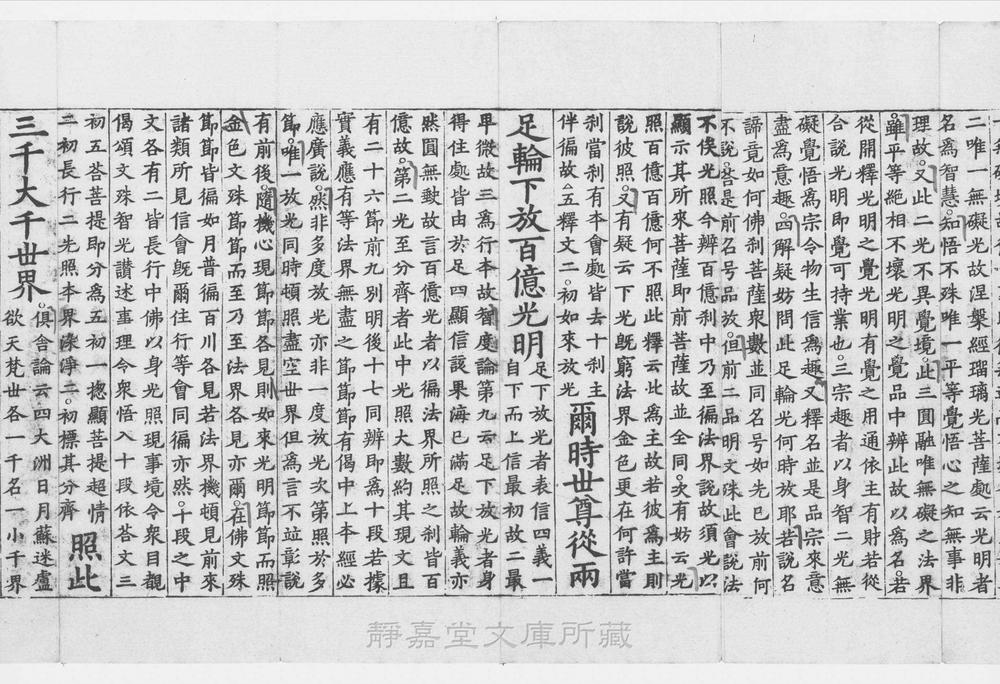 二唯一無礙光故涅槃經瑠璃光明者
名為智慧知悟不殊唯一平等覺悟心之知無事非
理故又此二光不異覺境此三圓融唯無礙之法界
雖平等絶相不壞光明之覺品中辨此故以為名若
從開釋光明之覺光明有覺之用通依主有財若從
合説光明即覺可持業也三宗趣者以身智二光無
礙覺悟為宗令物生信為趣又釋名並是品宗來意
盡為意趣四解疑妨問此足輪光何時放耶若説名
諦竟如何佛刹菩薩衆數並同名号如先已放前何
不説荅是前名号品放但前二品明文殊此會説法
不俟光照今辨百億刹中乃至徧法界説故須光以
顯示其所來菩薩即前菩薩故並全同次有妨云光
照百億百億何不照此釋云此為主故若彼為主則
説彼照又有疑云下光既窮法界金色更在何許當
刹當刹有本會處皆去十刹主
伴徧故△五釋文二初如來放光
爾時世尊從兩
足輪下放百億光明
足下放光者表信四義一
自下而上信最初故二最
卑微故三為行本故智度論第九云足下放光者身
得住處皆由於足四顯信該果海已滿足故輪義亦
然圓無缺故言百億光者以徧法界所照之刹皆百
億故第二光至分齊者此中光照大數約其現文且
有二十六節前九別明後十七同辨即為十段若據
實義應有等法界無盡之節節節有偈中上本經必
應廣説然非多度放光亦非一度放光次第照於多
節唯一放光同時頓照盡空世界但為言不竝彰説
有前後隨機心現節節各見則如來光明節節而照
金色文殊節節而至乃至法界各見亦爾在佛文殊
節節皆徧如月普徧百川各見若法界機頓見前來
諸類所見信會既爾住行等會同徧亦然十段之中
文各有二皆長行中佛以身光照現事境令衆目覩
偈頌文殊智光讃述事理令衆悟入十段依荅文三
初五荅菩提即分為五初一揔顯菩提超情
二初長行二先照本界深淨二初標其分齊
照此
三千大千世界
俱舍論云四大洲日月蘇迷盧
欲天梵世各一千名一小千界
靜嘉堂文庫所藏